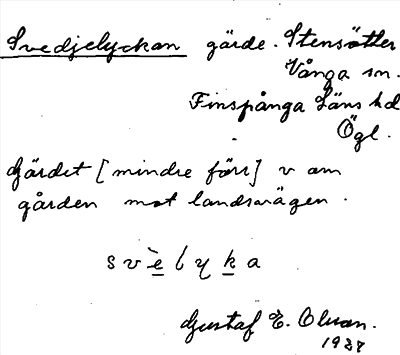 Svedjelyckan gärde. Stensätter
Vånga sn.
Finspånga Läns hd
Ögl.
Gärdet [mindre förr] v om
gården mot landsvägen.
svè̱lyḵa
Gustaf E. Olsson.